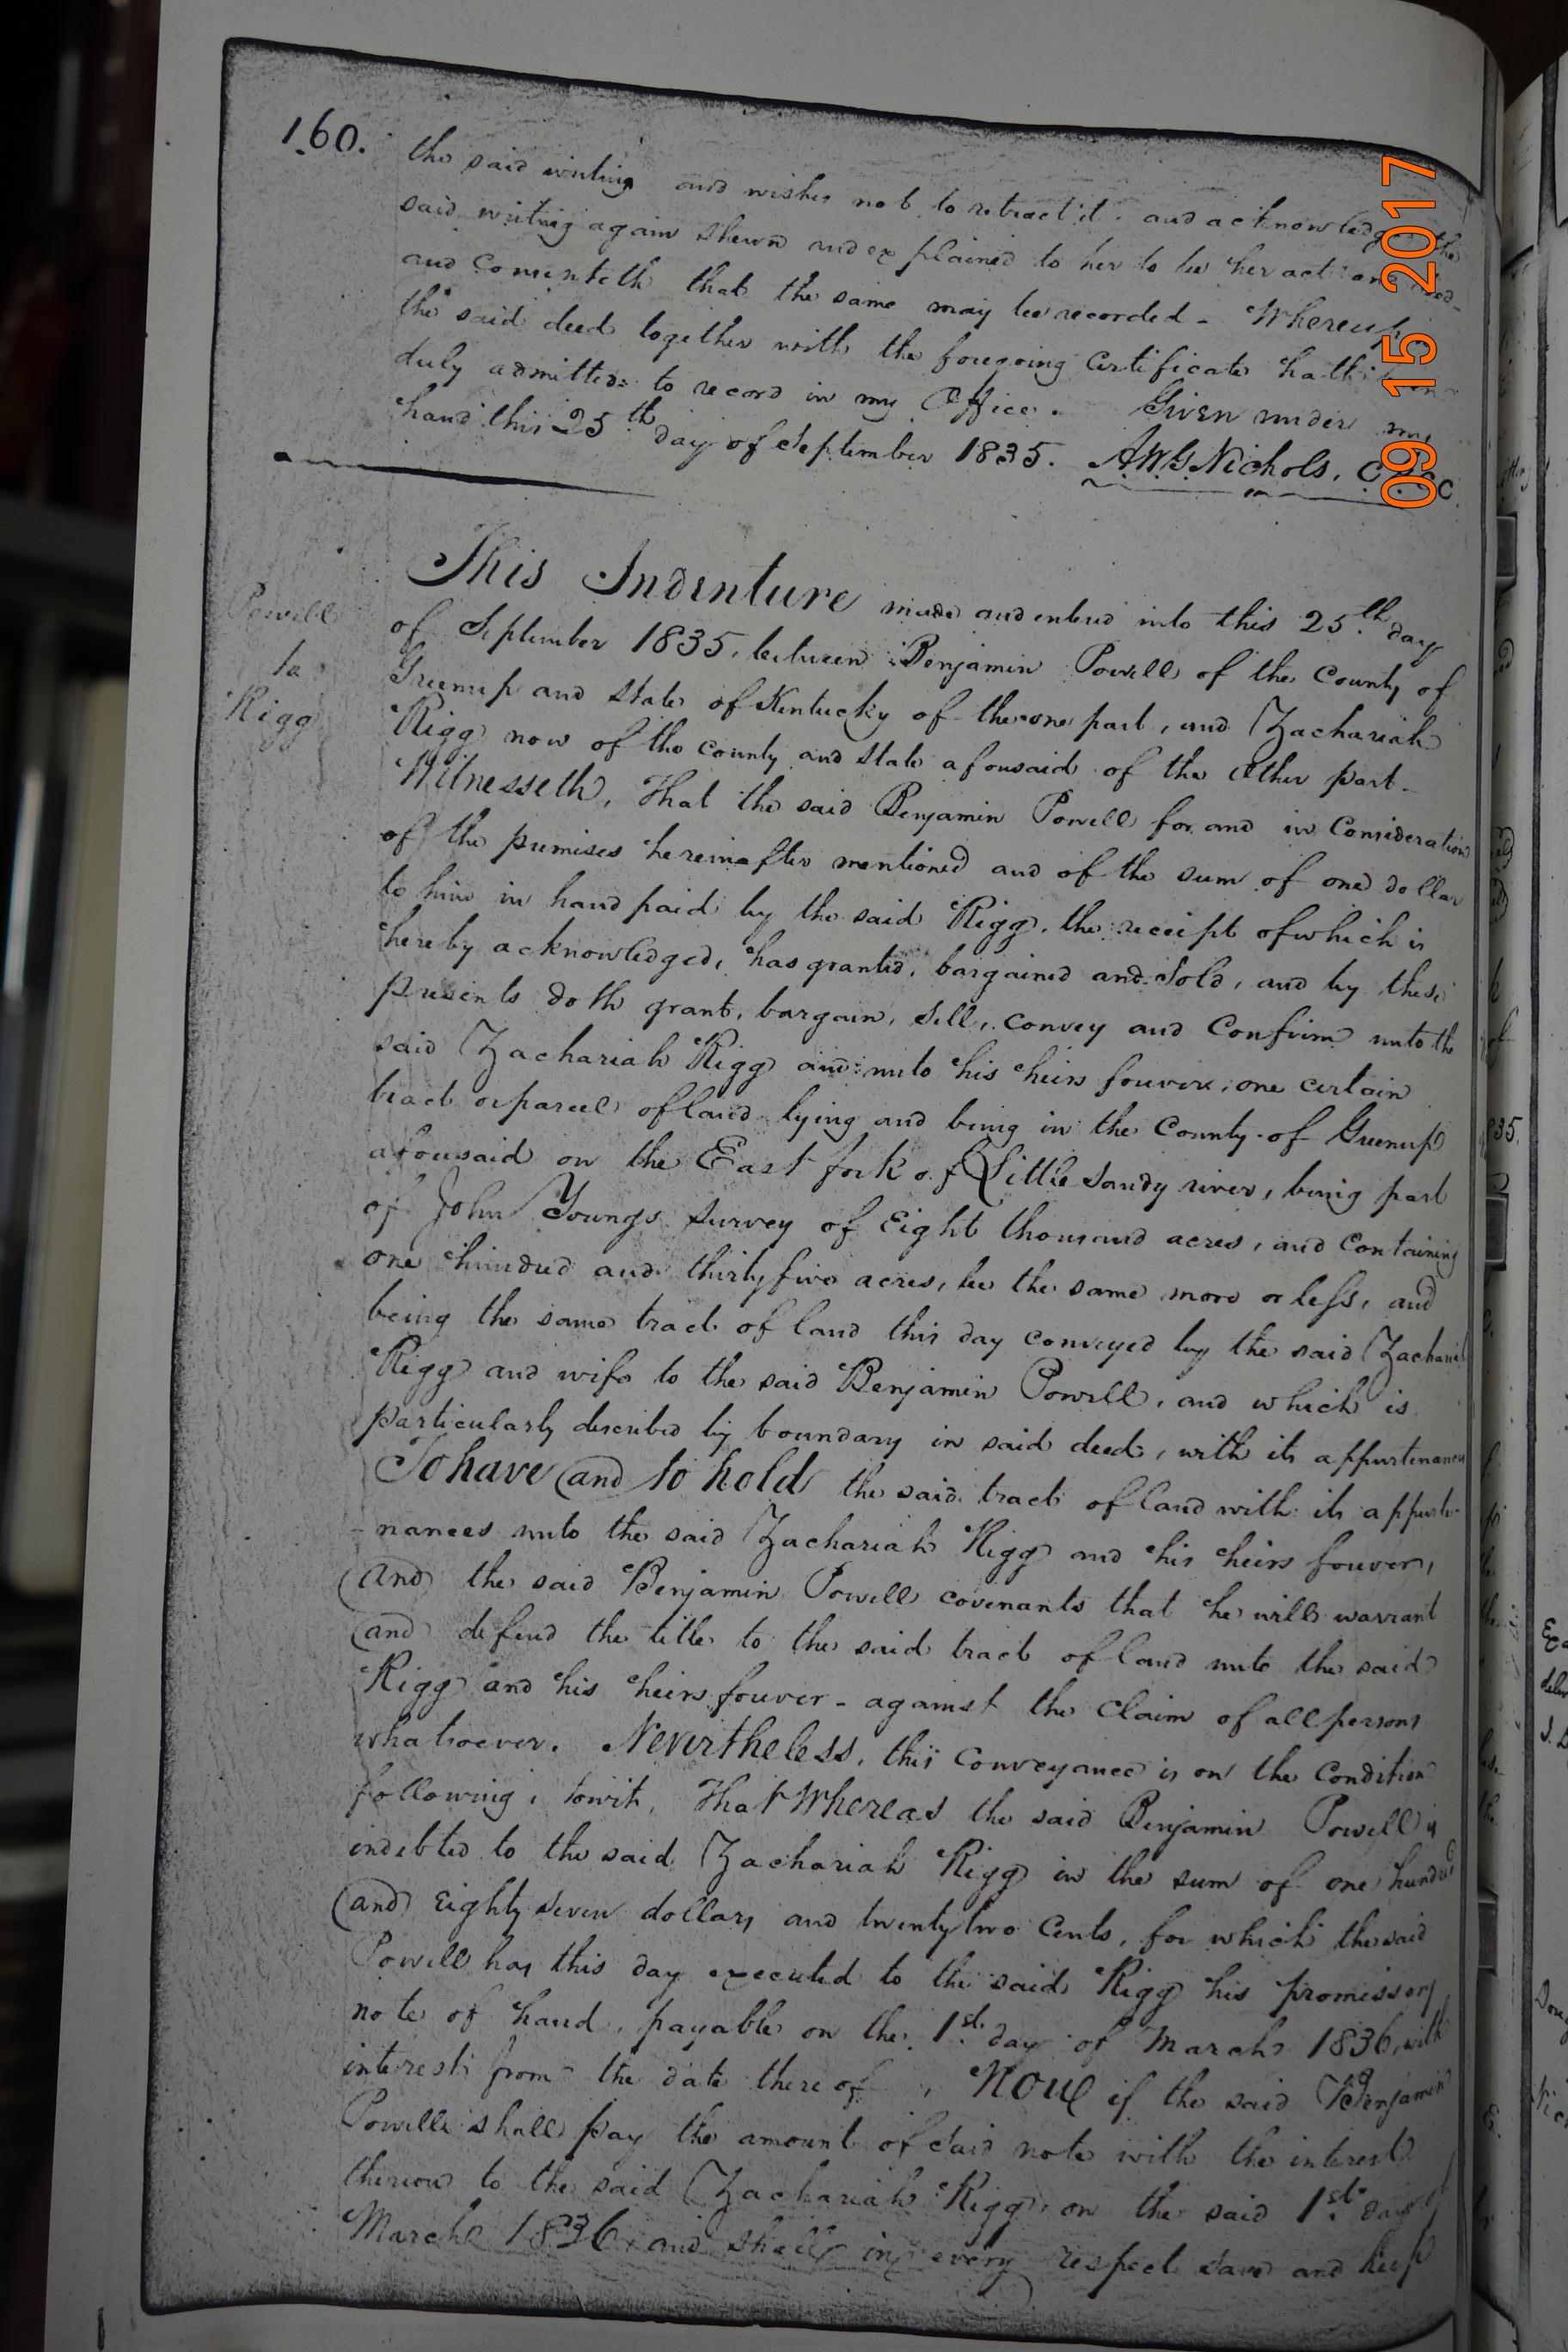 160.
the said writing and wishes not to retract it. and acknowledges the
said writing again shewn and explained to her to be her act and deed
and Consenteth that the same may be recorded - Whereup
the said deed together with the foregoing Certificate hath been
duly admitted to record in my Office. Given under my
hand this 25th day of September 1835. A.W.G Nichols, C
09 15 2017
This Indenture made and entered into this 25th day
of September 1835, between Benjamin Powell of the County of
Greenup and State of Kentucky of the one part, and Zachariah
Rigg now of the county and state aforesaid of the Other part -
Powell
to
Rigg
Witnesseth, That the said Benjamin Powell for and in Consideration
of the premises hereinafter mentioned and of the sum of one dollar
to him in hand paid by the said Rigg, the receipt of which is
hereby acknowledged, has granted, bargained and Sold, and by these
presents doth grant, bargain, Sell, convey and Confirm unto the
said Zachariah Rigg and unto his heirs forever, one certain
tract or parcel of land lying and being in the County of Greenup
aforesaid on the East fork of Little Sandy river, being part
of John Youngs survey of Eight thousand acres, and Containing
one hundred and thirty five acres, be the same more or less, and
being the same tract of land this day conveyed by the said Zachariah
Rigg and wife to the said Benjamin Powell, and which is
particularly described by boundary in said deed, with its appurtenances
To have and to hold the said tract of land with its appurte-
-nances unto the said Zachariah Rigg and his heirs forever,
and the said Benjamin Powell covenants that he will warrant
and defend the title to the said tract of land unto the said
Rigg and his heirs forever - against the Claim of all persons
whatsoever. Nevertheless, this Conveyance is on the Condition
following, towit, That Whereas the said Benjamin Powell is
indebted to the said Zachariah Rigg in the sum of one hundred
and Eighty Seven dollars and twenty two Cents, for which the said
Powell has this day executed to the said Rigg his promissory
note of hand, payable on the 1st day of March 1836, with
interest from the date thereof, Now if the said Benjamin
Powell shall pay the amount of Said note with the interest
thereon to the said Zachariah Rigg, on the said 1st day of
March 1836, and shall in every respect save and keep